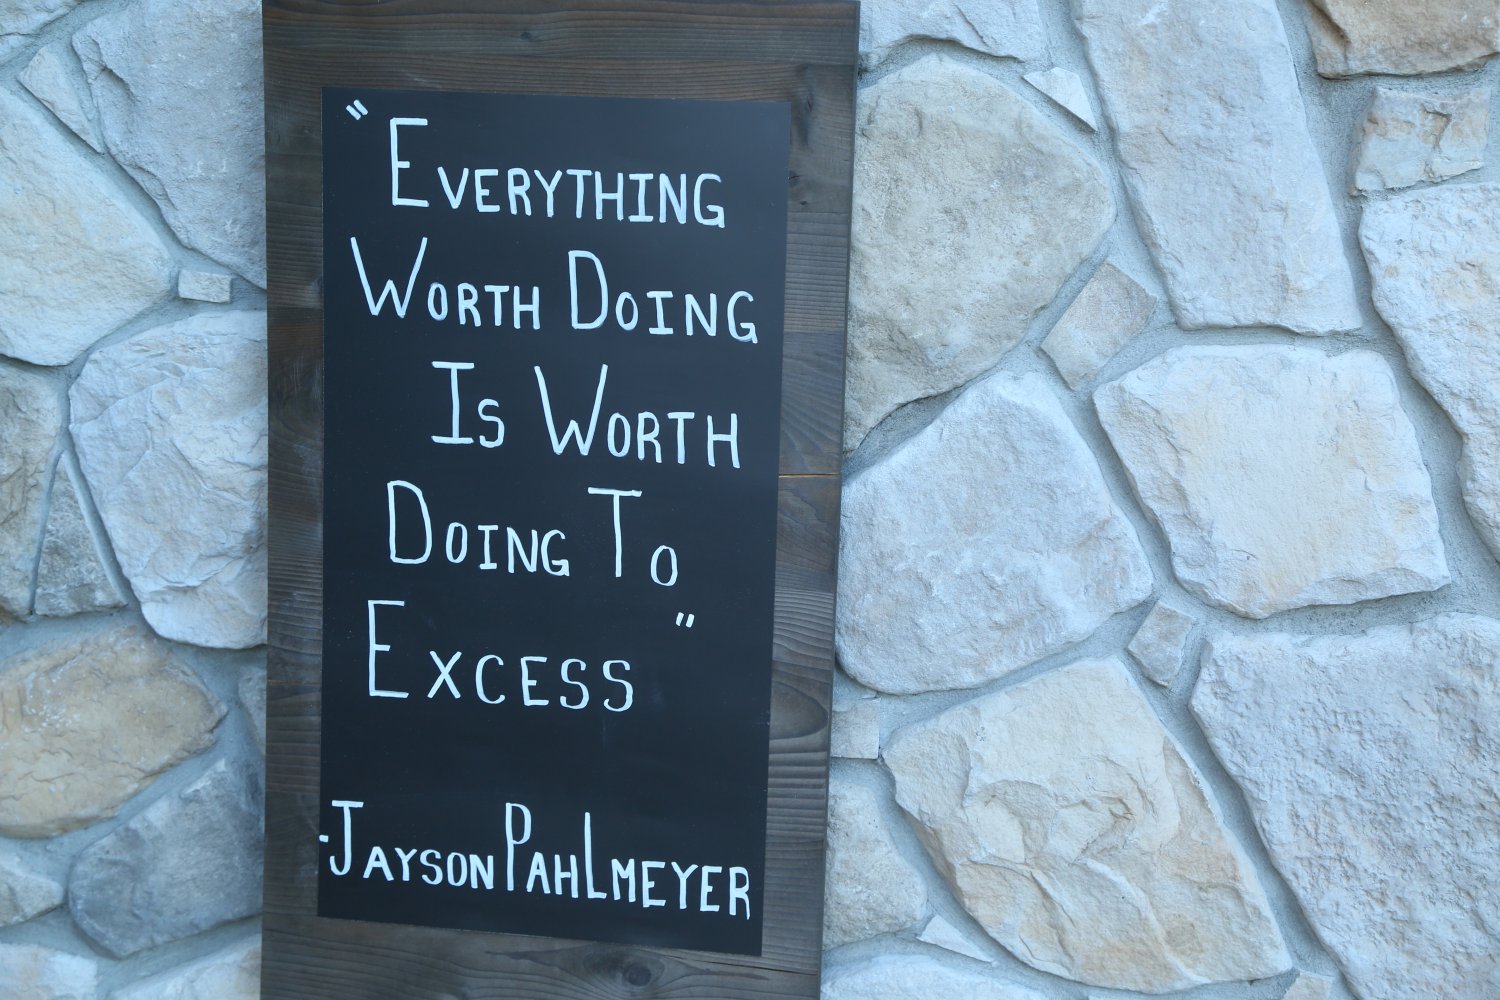 "Everything
Worth Doing
Is Worth
Doing To
Excess"
-Jayson Pahlmeyer